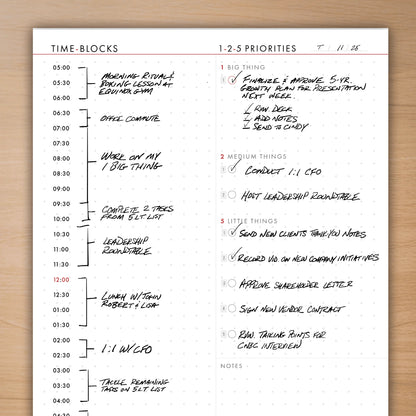 TIME-BLOCKS
05:00
05:30
06:00
MORNING RITUAL &
BOXING LESSON AT
EQUINOX GYM
06:30
07:00
OFFICE COMMUTE
07:30
08:00
08:30
09:00
WORK ON MY
1 BIG THING
09:30
10:00
COMPLETE 2 TASKS
FROM 5 LT LIST
10:30
11:00
11:30
LEADERSHIP
ROUNDTABLE
12:00
12:30
01:00
01:30
LUNCH W/ JOHN
ROBERT & LISA
02:00
02:30
1:1 W/ CFO
03:00
03:30
04:00
TACKLE REMAINING
TASKS ON 5 LT LIST
1-2-5 PRIORITIES
T 11 25
1 BIG THING
FINALIZE & APPROVE 5-YR.
GROWTH PLAN FOR PRESENTATION
NEXT WEEK.
ADD NOTES
SEND TO CINDY
2 MEDIUM THINGS
CONDUCT 1:1 CFO
HOST LEADERSHIP ROUNDTABLE
5 LITTLE THINGS
SEND NEW CLIENTS THANK YOU NOTES
RECORD VID. ON NEW COMPANY INITIATIVES
APPROVE SHAREHOLDER LETTER
SIGN NEW VENDOR CONTRACT
RVW. TALKING POINTS FOR
CNBC INTERVIEW
NOTES